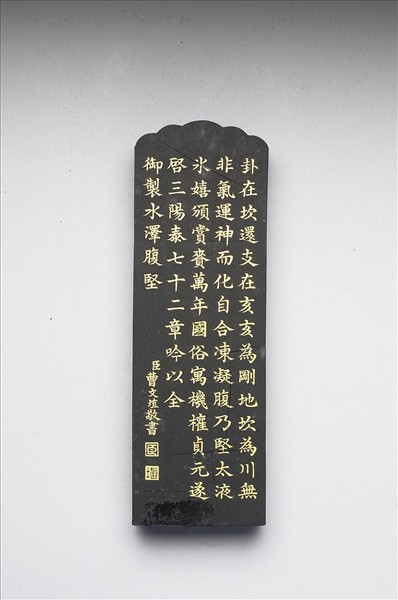 卦在坎還支在亥亥為剛地坎為川無
非氣運神而化自合凍凝腹乃堅太液
氷嬉頒賞賚萬年國俗寓機權貞元遂
啓三陽泰七十二章吟以全
御製水澤腹堅
臣曹文埴敬書